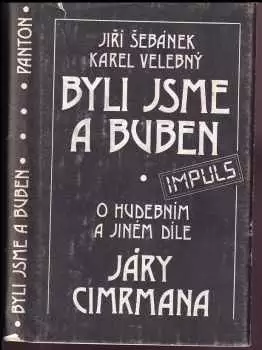 JIŘÍ ŠEBÁNEK
KAREL VELEBNÝ
BYLI JSME
A BUBEN
IMPULS
O HUDEBNÍM
A JINÉM DÍLE
JÁRY
CIMRMANA
BYLI JSME A BUBEN • • • PANTON •